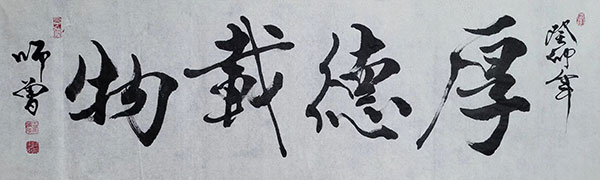 癸卯年
厚德載物
师曾